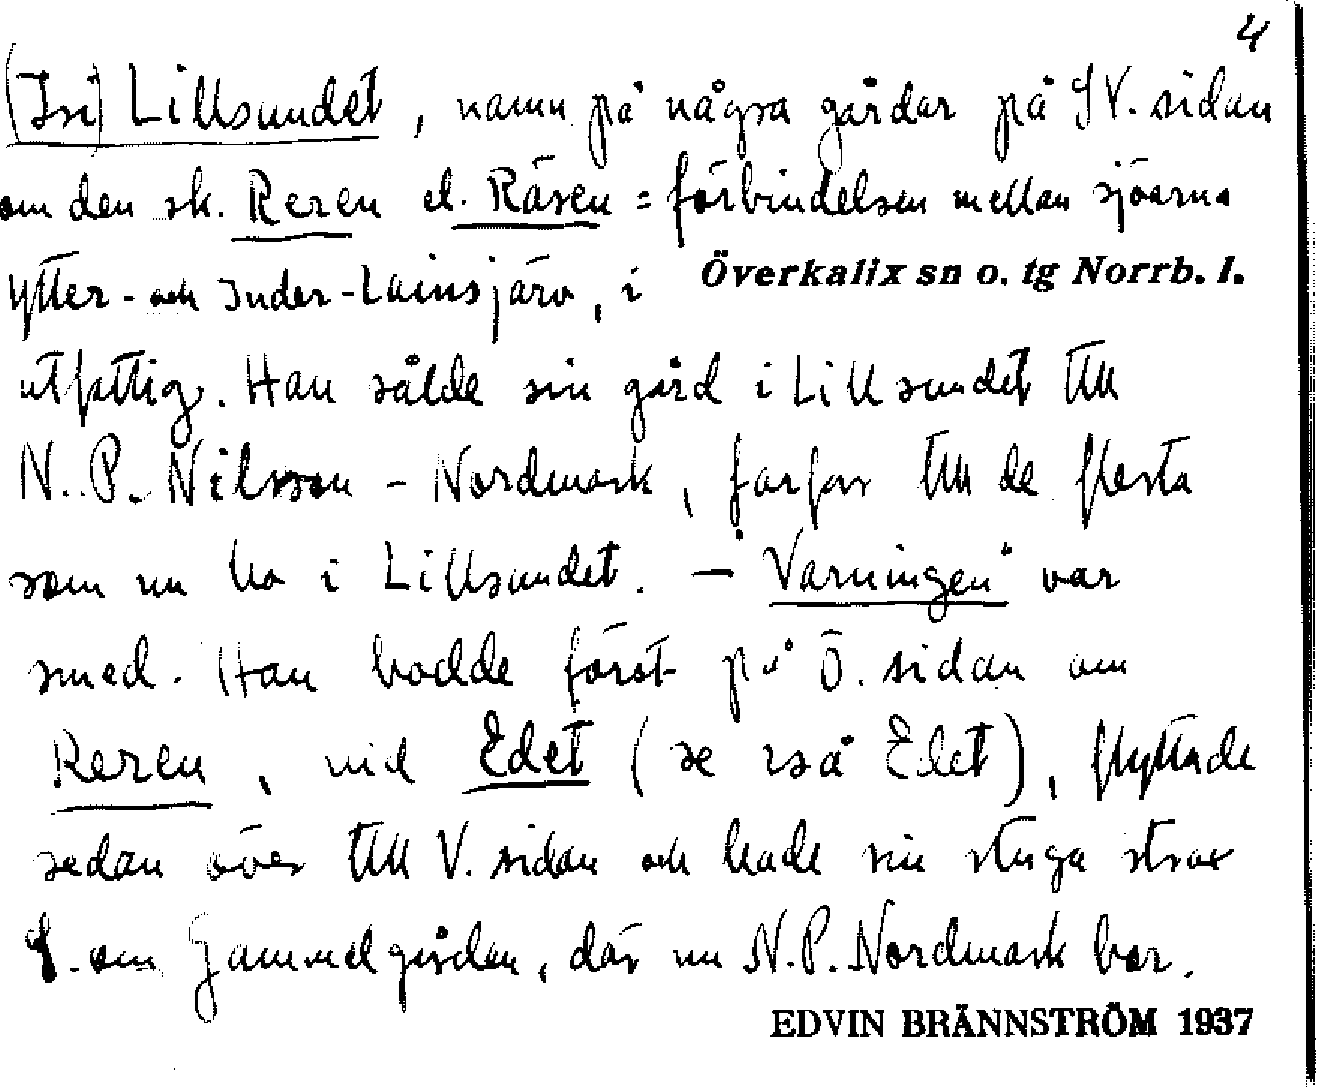 4
(Isi) Lillsundet, namn på några gårdar på SV. sidan
om den sk. Reren el. Räsen = förbindelsen mellan sjöarna
Ytter- och Inder-Lainsjärv, i Överkalix sn o. tg Norrb. l.
utfattig. Han sålde sin gård i Lillsundet till
N.P. Nilsson - Nordmark, farfar till de flesta
som nu bo i Lillsundet. – "Varningen" var
smed. Han bodde först på Ö. sidan om
Reren, vid Edet (se också Edet), flyttade
sedan över till V. sidan och hade sin stuga strax
S. om Gammelgården, där nu N.P. Nordmark bor.
EDVIN BRÄNNSTRÖM 1937